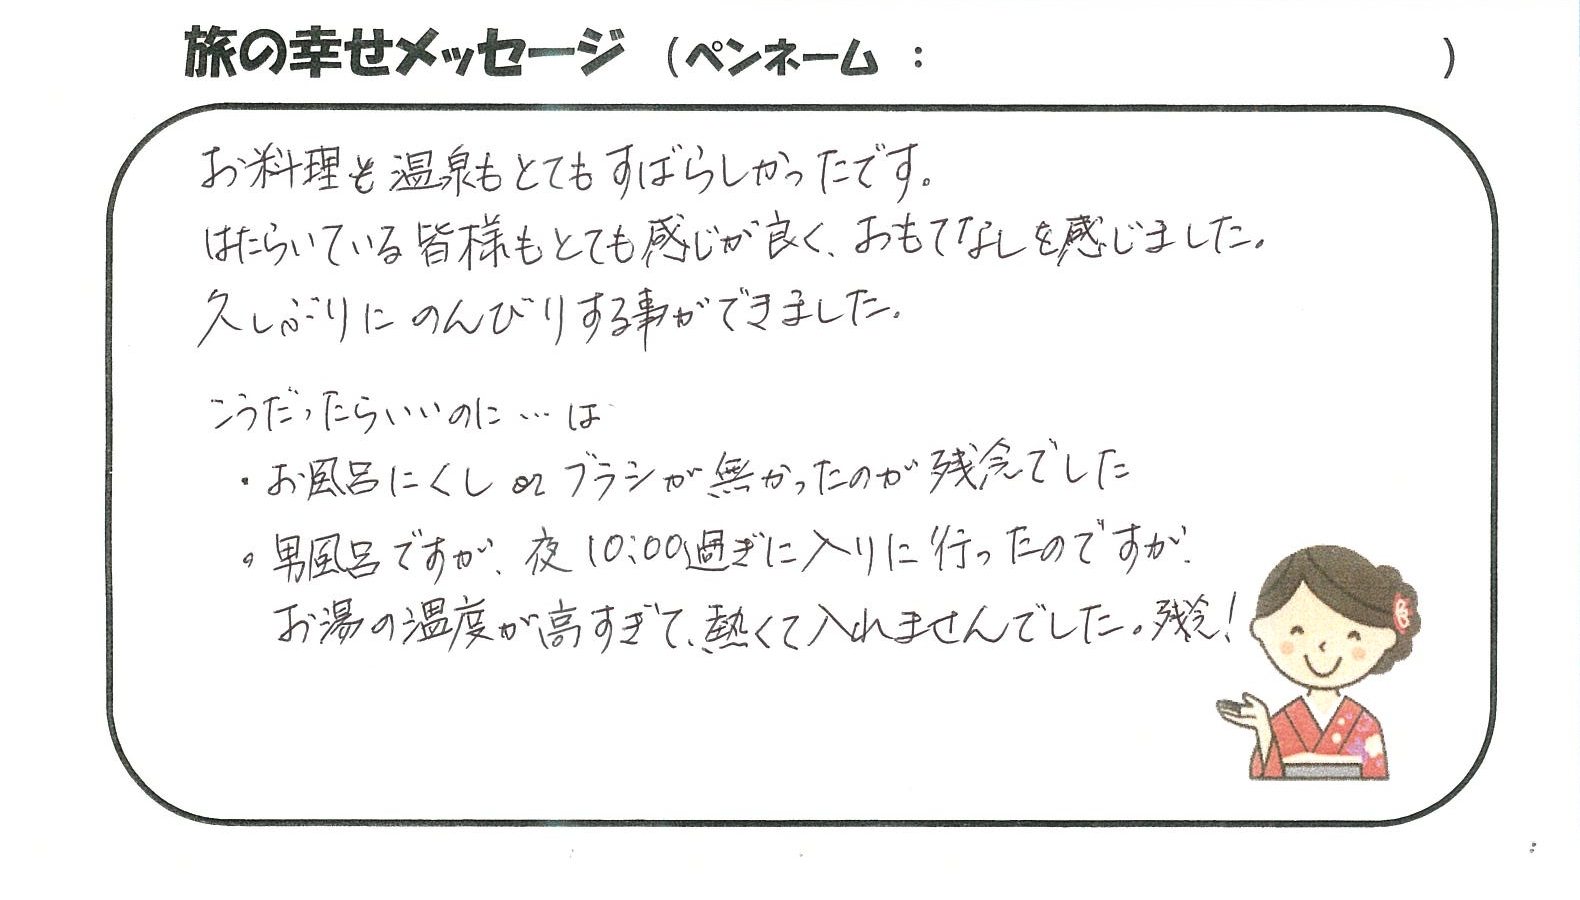 旅の幸せメッセージ (ペンネーム : )
お料理も温泉もとてもすばらしかったです。
はたらいている皆様もとても感じが良く、おもてなしを感じました。
久しぶりにのんびりする事ができました。
こうだったらいいのに…は
・お風呂にくし or ブラシが無かったのが残念でした
・男風呂ですが、夜10:00過ぎに入りに行ったのですが、
お湯の温度が高すぎて、熱くて入れませんでした。残念!